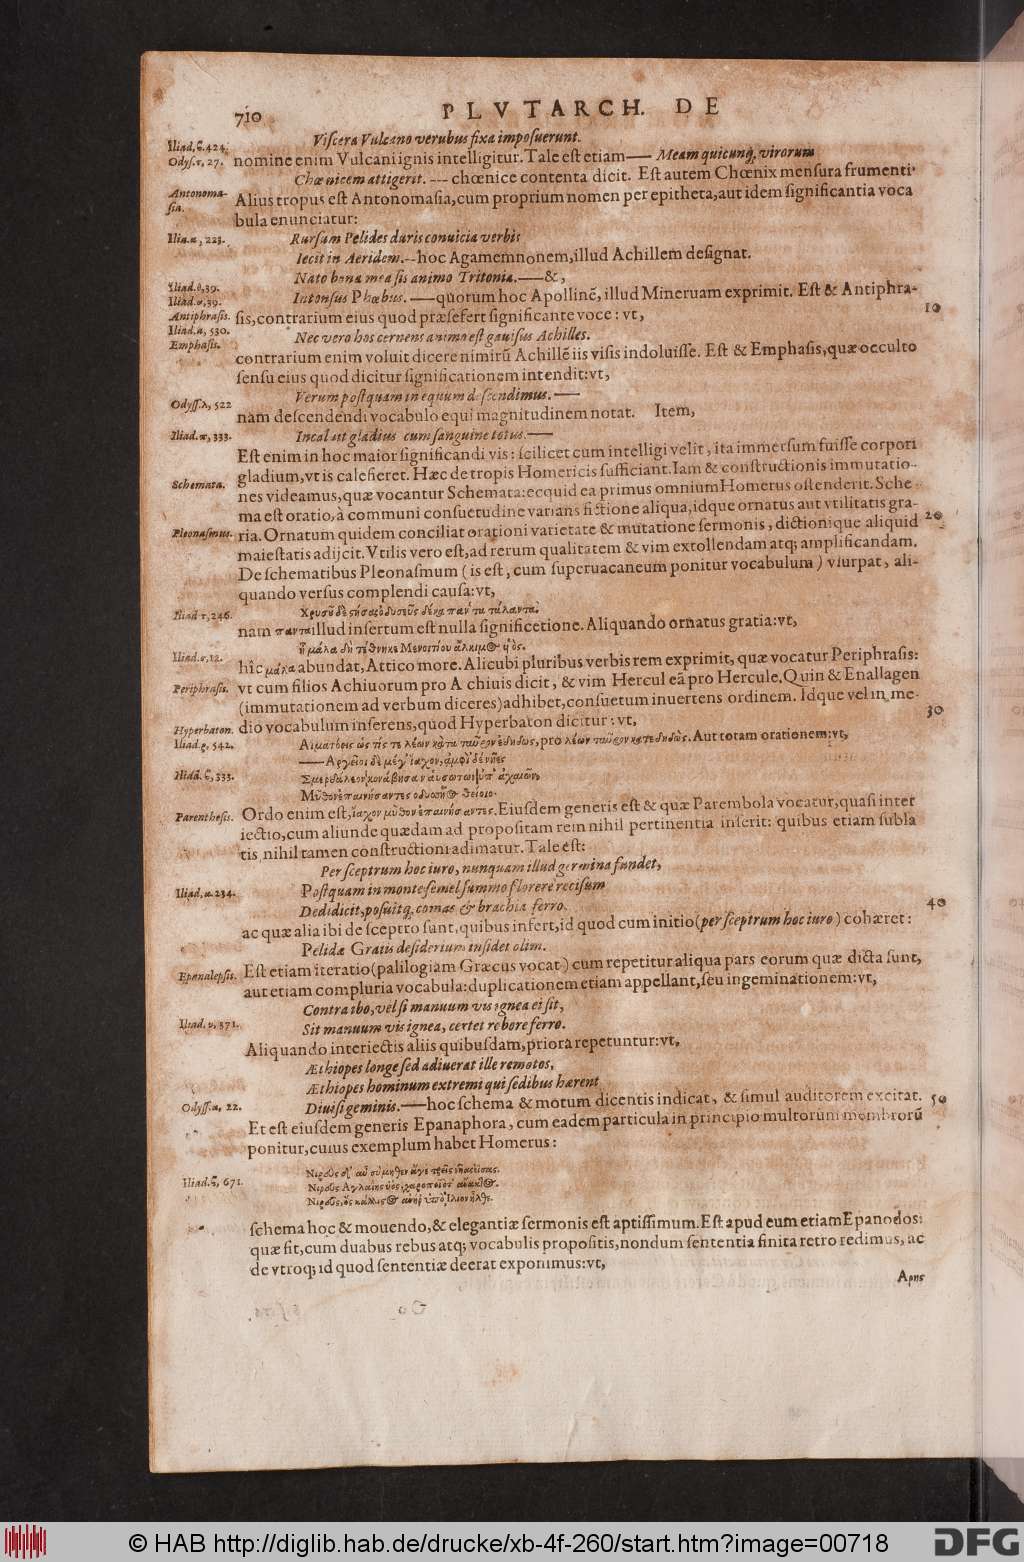 710
PLVTARCH. DE
Viſcera Vulcano verubus fixa impoſuerunt.
Iliad.ϐ.424.
nomine enim Vulcani ignis intelligitur. Tale eſt etiam—— Meam quicunq; virorum
Odyſ.τ, 27.
Chœnicem attigerit. —— chœnice contenta dicit. Eſt autem Chœnix menſura frumenti.
Antonoma-
ſia.
Alius tropus eſt Antonomaſia, cum proprium nomen per epitheta, aut idem ſignificantia voca
bula enunciatur:
Ilia.α, 223.
Rurſum Pelides duris conuicia verbis
Iecit in Aeridem.--hoc Agamemnonem, illud Achillem deſignat.
Nato bona mea ſis animo Tritonia.——&,
Iliad.θ,39.
Iliad.υ,39.
Intonſus Phœbus. ——quorum hoc Apollinē, illud Mineruam exprimit. Eſt & Antiphra-
10
Antiphraſis.
ſis, contrarium eius quod præſefert ſignificante voce: vt,
Iliad.α, 530.
Nec vero hos cernens animo eſt gauiſus Achilles.
Emphaſis.
contrarium enim voluit dicere nimirū Achillē iis viſis indoluiſſe. Eſt & Emphaſis, quæ occulto
ſenſu eius quod dicitur ſignificationem intendit: vt,
Odyſſ.λ, 522
Verum poſtquam in equum deſcendimus.——
nam deſcendendi vocabulo equi magnitudinem notat. Item,
Iliad.π, 333.
Incaluit gladius cum ſanguine totus.——
Eſt enim in hoc maior ſignificandi vis: ſcilicet cum intelligi velit, ita immerſum fuiſſe corpori
gladium, vt is calefieret. Hæc de tropis Homericis ſufficiant. Iam & conſtructionis immutatio-
Schemata.
nes videamus, quæ vocantur Schemata: ecquid ea primus omnium Homerus oſtenderit. Sche-
ma eſt oratio, à communi conſuetudine varians fictione aliqua, idque ornatus aut vtilitatis gra-
20
Pleonaſmus.
ria. Ornatum quidem conciliat orationi varietate & mutatione ſermonis, dictionique aliquid
maieſtatis adijcit. Vtilis vero eſt, ad rerum qualitatem & vim extollendam atq; amplificandam.
De ſchematibus Pleonaſmum (is eſt, cum ſuperuacaneum ponitur vocabulum) vſurpat, ali-
quando verſus complendi cauſa: vt,
Iliad τ,246.
Χρυσοῦ δὲ στήσας ὀδυσεῦς δέκα πάντα τάλαντα.
nam παντα illud inſertum eſt nulla ſignificetione. Aliquando ornatus gratia: vt,
ἦ μάλα δὴ τέθνηκε Μενοιτίου ἄλκιμος ὑιός.
Iliad.σ,12.
hîc μάλα abundat, Attico more. Alicubi pluribus verbis rem exprimit, quæ vocatur Periphraſis:
Periphraſis.
vt cum filios Achiuorum pro Achiuis dicit, & vim Herculeā pro Hercule. Quin & Enallagen
(immutationem ad verbum diceres) adhibet, conſuetum inuertens ordinem. Idque vel in me-
30
Hyperbaton.
dio vocabulum inſerens, quod Hyperbaton dicitur: vt,
Iliad.ρ, 542.
Αἱματόεις ὡς τίς τε λέων κατὰ ταῦρον ἐδηδώς, pro λέων ταῦρον κατεδηδώς. Aut totam orationem: vt,
——Ἀργεῖοι δὲ μέγ' ἴαχον, ἀμφὶ δὲ νῆες
Iliad. ϐ, 333.
Σμερδάλεον κονάβησαν ἀυσάντων ὑπ' ἀχαιῶν,
Μῦθον ἐπαινήσαντες ὀδυσσῆος θείοιο.
Parentheſis.
Ordo enim eſt, ἴαχον μῦθον ἐπαινήσαντες. Eiuſdem generis eſt & quæ Parembola vocatur, quaſi inter
iectio, cum aliunde quædam ad propoſitam rem nihil pertinentia inſerit: quibus etiam ſubla
tis nihil tamen conſtructioni adimatur. Tale eſt:
Per ſceptrum hoc iuro, nunquam illud germina fundet,
Iliad.α.234.
Poſtquam in monte ſemel ſummo florere reciſum
Dedidicit, poſuitq; comas & brachia ferro.
40
ac quæ alia ibi de ſceptro ſunt, quibus infert, id quod cum initio (per ſceptrum hoc iuro) cohæret:
Pelidæ Graiis deſiderium inſidet olim.
Epanalepſis.
Eſt etiam iteratio (palilogiam Græcus vocat) cum repetitur aliqua pars eorum quæ dicta ſunt,
aut etiam compluria vocabula: duplicationem etiam appellant, ſeu ingeminationem: vt,
Contra ibo, vel ſi manuum vis ignea ei ſit,
Iliad. υ, 371.
Sit manuum vis ignea, certet robore ferro.
Aliquando interiectis aliis quibuſdam, priora repetuntur: vt,
Æthiopes longe ſed adiuerat ille remotos,
Æthiopes hominum extremi qui ſedibus hærent
Odyſſ.α, 22.
Diuiſi geminis.——hoc ſchema & motum dicentis indicat, & ſimul auditorem excitat.
50
Et eſt eiuſdem generis Epanaphora, cum eadem particula in principio multorum membrorū
ponitur, cuius exemplum habet Homerus:
Νιρεὺς δ' αὖ σύμηθεν ἄγε τρεῖς νῆας ἐίσας.
Iliad.ϐ, 671.
Νιρεὺς Ἀγλαΐης ὑὸς, χαροποῖό τ' ἄνακτος.
Νιρεὺς, ὃς κάλλιστος ἀνὴρ ὑπὸ Ἴλιον ἦλθε.
ſchema hoc & mouendo, & elegantiæ ſermonis eſt aptiſſimum. Eſt apud eum etiam Epanodos:
quæ fit, cum duabus rebus atq; vocabulis propoſitis, nondum ſententia finita retro redimus, ac
de vtroq; id quod ſententiæ deerat exponimus: vt,
Αρης
© HAB http://diglib.hab.de/drucke/xb-4f-260/start.htm?image=00718
DFG